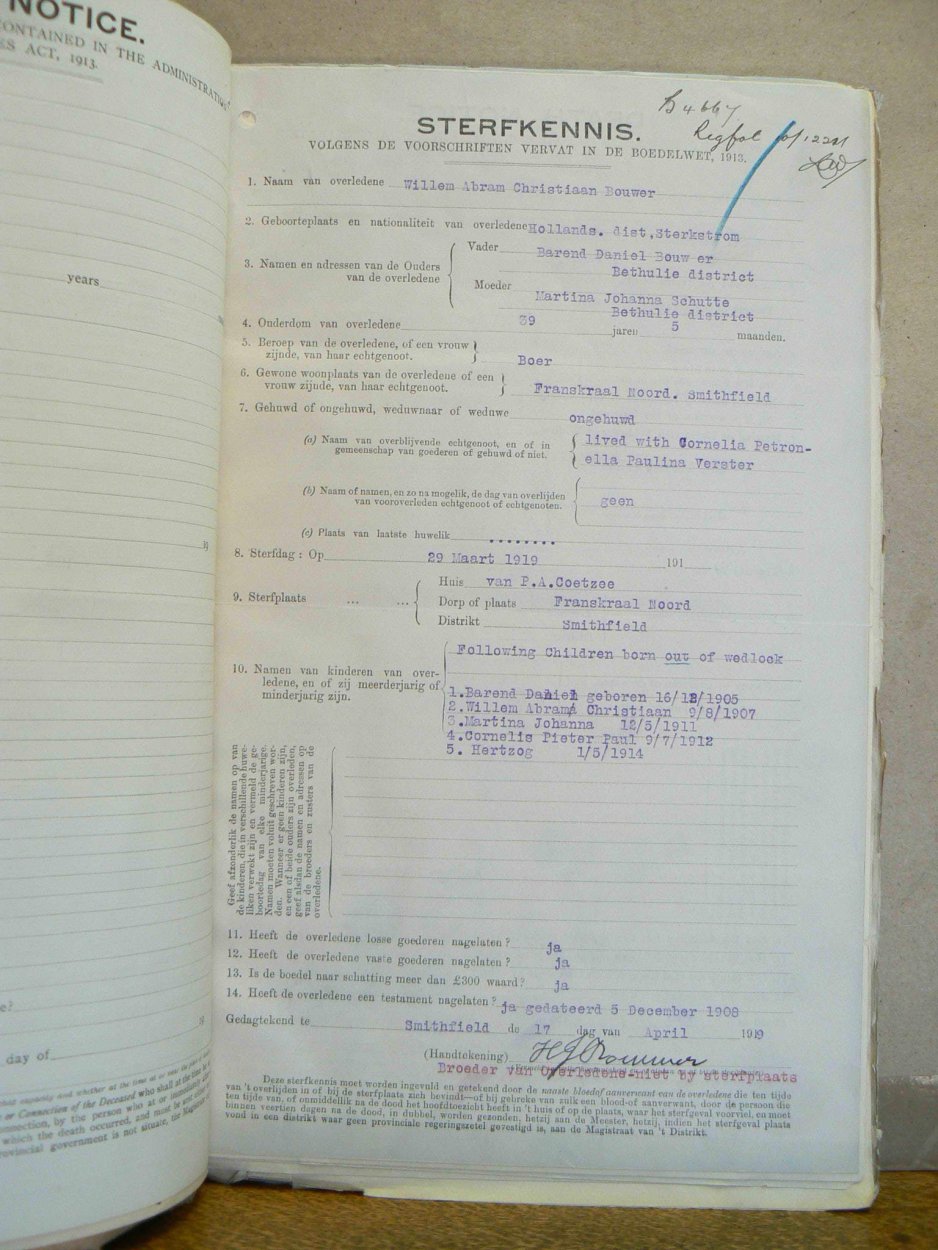 NOTICE.
CONTAINED IN THE ADMINISTRATION
ES ACT, 1913.
years
19
e?
19
day of
B 4667
STERFKENNIS.
VOLGENS DE VOORSCHRIFTEN VERVAT IN DE BOEDELWET, 1913.
1. Naam van overledene Willem Abram Christiaan Bouwer
2. Geboorteplaats en nationaliteit van overledene Hollands. dist, Sterkstrom
3. Namen en adressen van de Ouders van de overledene
Vader Barend Daniel Bouw er
Bethulie district
Moeder
Martina Johanna Schutte
Bethulie district
4. Onderdom van overledene 39 jaren 5 maanden.
5. Beroep van de overledene, of een vrouw
zijnde, van haar echtgenoot. Boer
6. Gewone woonplaats van de overledene of een
vrouw zijnde, van haar echtgenoot. Franskraal Noord. Smithfield
7. Gehuwd of ongehuwd, weduwnaar of weduwe ongehuwd
(a) Naam van overblijvende echtgenoot, en of in
gemeenschap van goederen of gehuwd of niet.
lived with Cornelia Petron-
ella Paulina Verster
(b) Naam of namen, en zo na mogelik, de dag van overlijden
van vooroverleden echtgenoot of echtgenoten. geen
(c) Plaats van laatste huwelik ........
8. Sterfdag : Op 29 Maart 1919 191
9. Sterfplaats ... ...
Huis van P.A.Coetzee
Dorp of plaats Franskraal Noord
Distrikt Smithfield
10. Namen van kinderen van over-
ledene, en of zij meerderjarig of
minderjarig zijn.
Following Children born out of wedlock
1. Barend Daniel geboren 16/12/1905
2. Willem Abram Christiaan 9/8/1907
3. Martina Johanna 12/5/1911
4. Cornelis Pieter Paul 9/7/1912
5. Hertzog 1/5/1914
Geef afzonderlik de namen op van
de kinderen, die in verschillende huwe-
liken verwekt zijn en vermeld de ge-
boortedag van elke minderjarige.
Namen moeten voluit geschreven wor-
den. Wanneer er geen kinderen zijn,
en een of beide ouders zijn overleden,
geef alsdan de namen en adressen op
van de broeders en zusters van de
overledene.
11. Heeft de overledene losse goederen nagelaten ? ja
12. Heeft de overledene vaste goederen nagelaten ? ja
13. Is de boedel naar schatting meer dan £300 waard ? ja
14. Heeft de overledene een testament nagelaten ? ja gedateerd 5 December 1908
Gedagtekend te Smithfield de 17 dag van April 1919
(Handtekening)
Broeder van Overledene-niet by sterfplaats
Deze sterfkennis moet worden ingevuld en getekend door de naaste bloedofaanverwant van de overledene die ten tijde
van 't overlijden in of bij de sterfplaats zich bevindt—of bij gebreke van zulk een blood-of aanverwant, door de persoon die
ten tijde van, of onmiddellik na de dood het hoofdtoezicht heeft in 't huis of op de plaats, waar het sterfgeval voorviel, en moet
binnen veertien dagen na de dood, in dubbel, worden gezonden, hetzij aan de Meester, hetzij, indien het sterfgeval plaats
vond in een distrikt waar geen provinciale regeringszetel gevestigd is, aan de Magistraat van 't Distrikt.